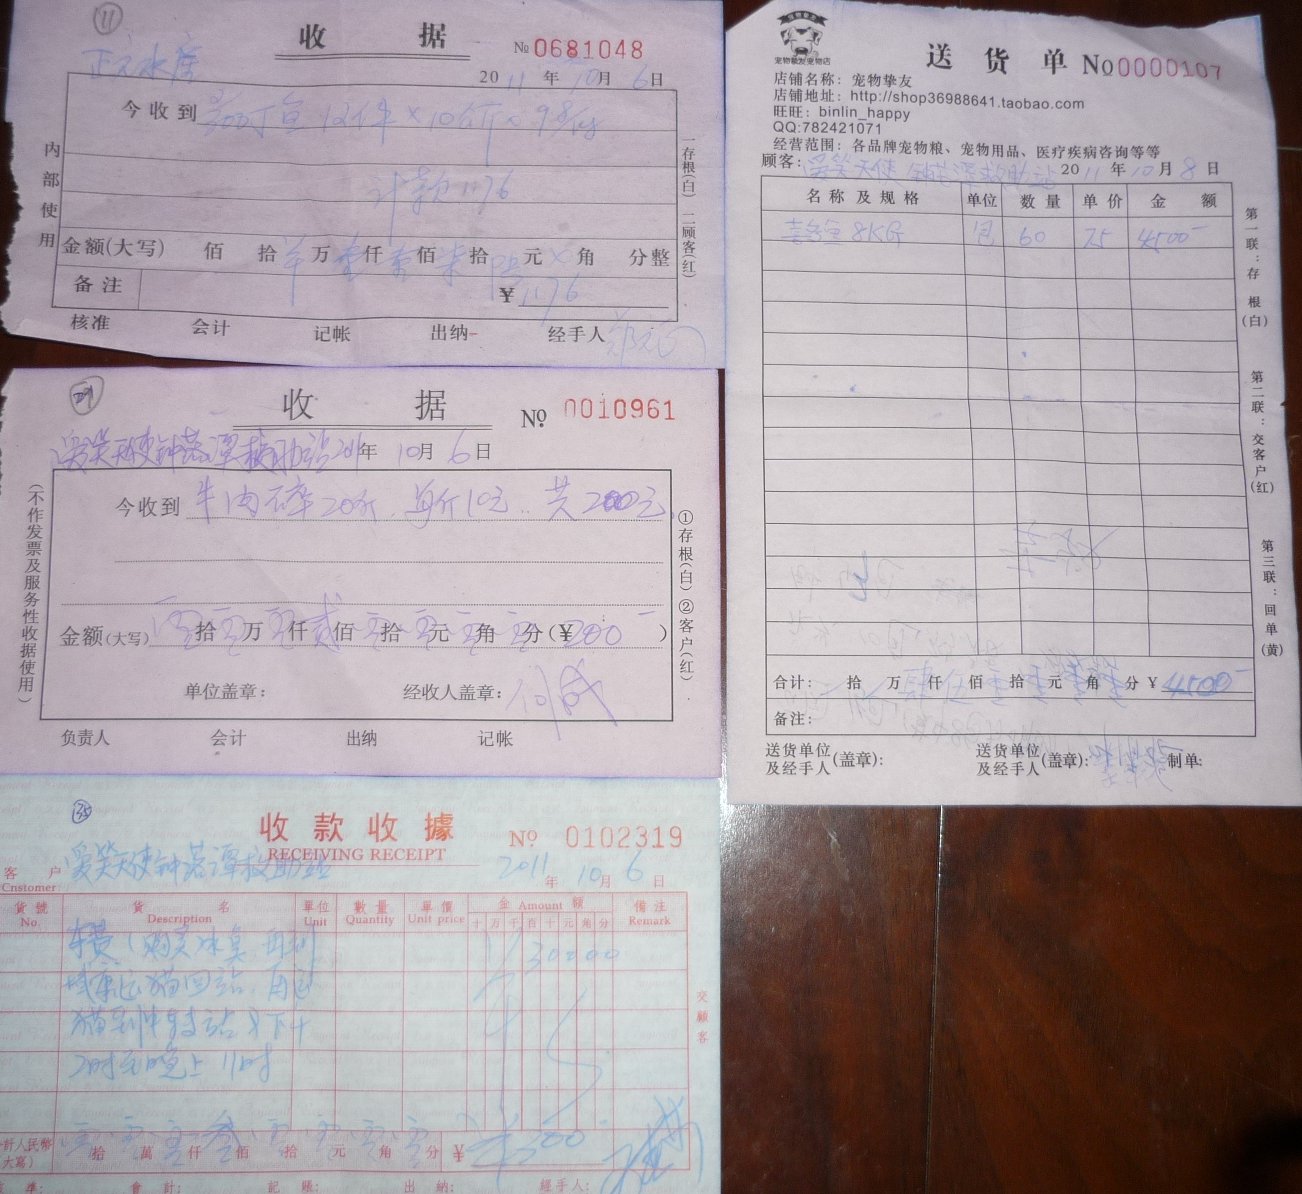 11
收 据
№ 0681048
正元水產
20 11 年 10 月 6 日
今收到
12件×10斤×98/件
计款1176
金额(大写) 佰 拾 万 壹 仟 壹 佰 柒 拾 陆 元 角 分整
备注 ¥ 1176
核准 会计 记帐 出纳 经手人
内部使用
一存根(白) 二顾客(红)
收 据
No. 0010961
爱笑天使钟落潭救助站 2011年 10月 6日
今收到 牛肉碎20斤,每斤10元,共200元
金额(大写) 拾 万 仟 贰 佰 拾 元 角 分(¥ 200 )
单位盖章: 经收人盖章:
负责人 会计 出纳 记帐
(不作发票及服务性收据使用)
①存根(白) ②客户(红)
35
收 款 收 據
RECEIVING RECEIPT
No. 0102319
客 户 爱笑天使钟落潭救助站
Cnstomer:
2011 年 10 月 6 日
貨號 貨 名 單位 數量 單價 金 Amount 額 備注
No. Description Unit Quantity Unit price 十 万 千 百 十 元 角 分 Remark
车费(购买冰臭,再到 30000
运猫回站,再送
猫到中转站)下午
2时至晚上11时
合計人民幣(大寫) 拾 萬 仟 叁 佰 拾 元 角 分 ¥ 300
核準: 會計: 記賬: 出納: 經手人:
交顧客
宠物挚友宠物店
送 货 单 No 0000107
店铺名称: 宠物挚友
店铺地址: http://shop36988641.taobao.com
旺旺: binlin_happy
QQ:782421071
经营范围: 各品牌宠物粮、宠物用品、医疗疾病咨询等等
顾客: 爱笑天使 钟落潭救助站 20 11 年 10 月 8 日
名 称 及 规 格 单位 数 量 单 价 金 额
8KG 包 60 75 4500
合计: 拾 万 肆 仟 伍 佰 拾 元 角 分 ¥ 4500
备注:
送货单位及经手人(盖章): 送货单位及经手人(盖章): 制单:
第一联:存根(白)
第二联:交客户(红)
第三联:回单(黄)